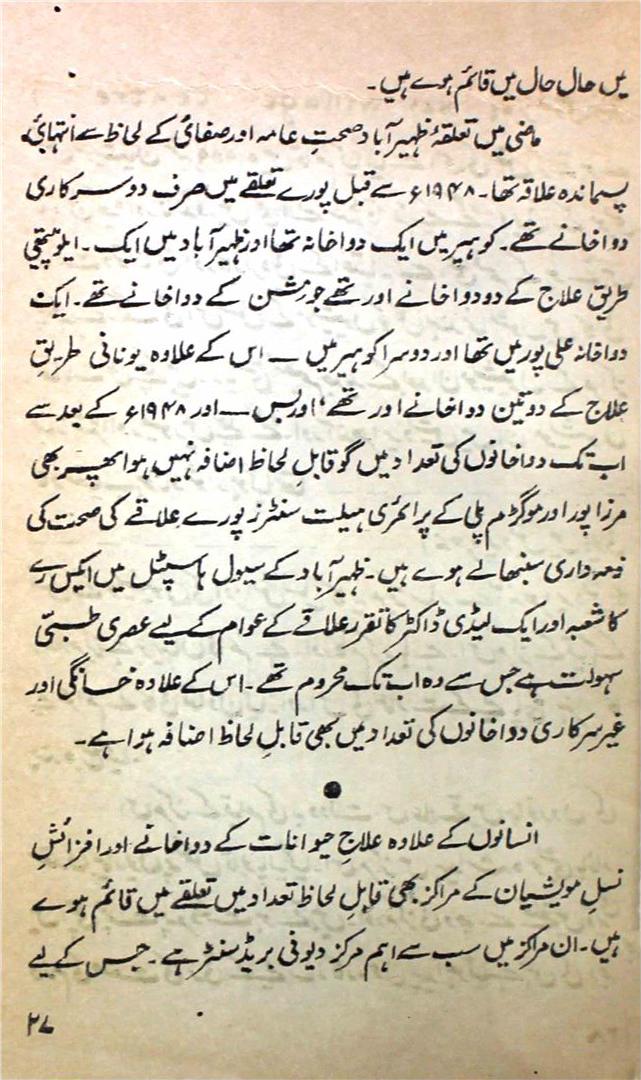 میں حال حال میں قائم ہوے ہیں۔
ماضی میں تعلقۂ ظہیر آباد صحتِ عامہ اور صفائی کے لحاظ سے انتہائی
پسماندہ علاقہ تھا۔ ۱۹۴۸ء سے قبل پورے تعلقے میں صرف دو سرکاری
دواخانے تھے۔ کوہیر میں ایک دواخانہ تھا اور ظہیر آباد میں ایک۔ ایلوپیتھی
طریق علاج کے دو دواخانے اور تھے جو مشن کے دواخانے تھے۔ ایک
دواخانہ علی پور میں تھا اور دوسرا کوہیر میں ـــ اس کے علاوہ یونانی طریقِ
علاج کے دو تین دواخانے اور تھے، اور بس ـــ اور ۱۹۴۸ء کے بعد سے
اب تک دواخانوں کی تعداد میں گو قابلِ لحاظ اضافہ نہیں ہوا پھر بھی
مرزا پور اور موگڑم پلی کے پرائمری ہیلت سنٹرز پورے علاقے کی صحت کی
ذمہ داری سنبھالے ہوے ہیں۔ ظہیر آباد کے سیول ہاسپٹل میں ایکس رے
کا شعبہ اور ایک لیڈی ڈاکٹر کا تقرر علاقے کے عوام کے لیے عصری طبّی
سہولت ہے جس سے وہ اب تک محروم تھے۔ اس کے علاوہ خانگی اور
غیر سرکاری دواخانوں کی تعداد میں بھی قابلِ لحاظ اضافہ ہوا ہے۔
●
انسانوں کے علاوہ علاجِ حیوانات کے دواخانے اور افزائشِ
نسلِ مویشیان کے مراکز بھی قابلِ لحاظ تعداد میں تعلقے میں قائم ہوے
ہیں۔ ان مراکز میں سب سے اہم مرکز دیونی بریڈ سنٹر ہے۔ جس کے لیے
۲۷